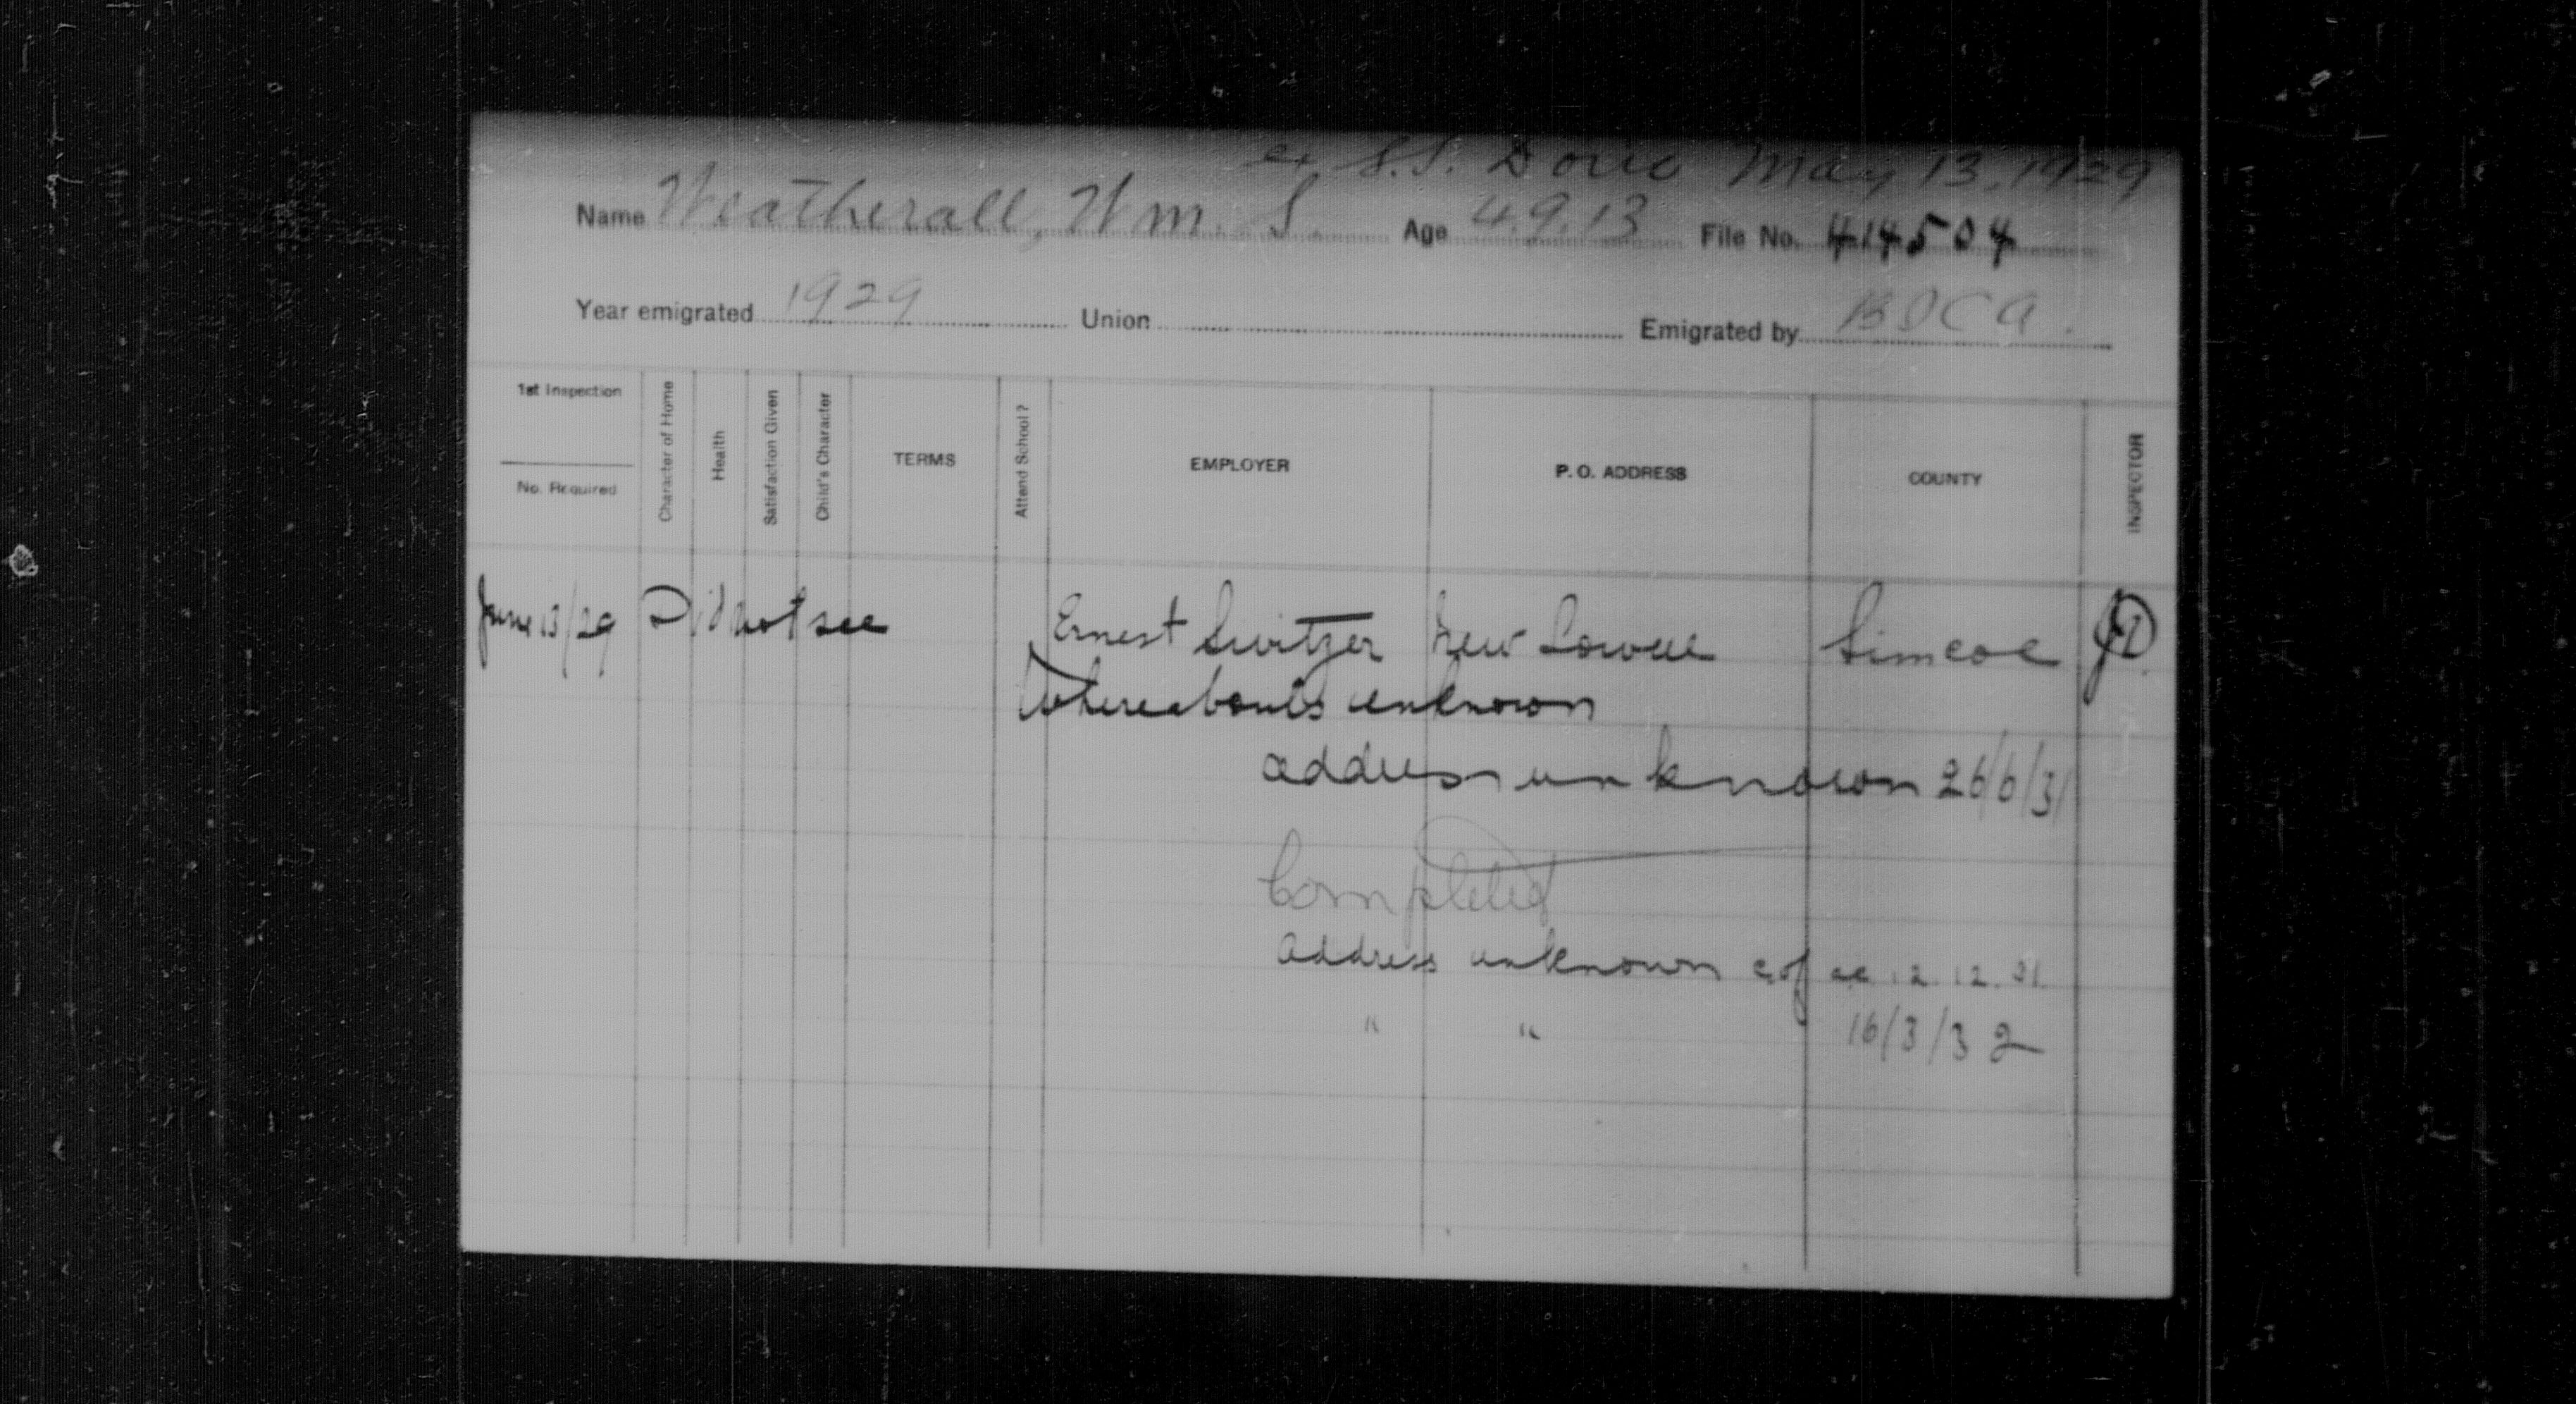 ex S.S. Doric May 13, 1929
Name Weatherall, Wm. S. Age 4.9.13 File No. 414504
Year emigrated 1929 Union Emigrated by BICA.
1st Inspection
No. Required
Character of Home
Health
Satisfaction Given
Child's Character
TERMS
Attend School?
EMPLOYER
P. O. ADDRESS
COUNTY
INSPECTOR
June 13/29 Did not see Ernest Switzer New Lowell Simcoe
Whereabouts unknown
address unknown 26/6/31
Completed
Address unknown 12.12.31.
" " 16/3/32